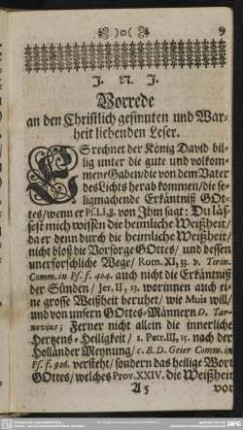 9
J. N. J.
Vorrede
an den Christlich gesinnten und War-
heit liebenden Leser.
ES rechnet der König David bil-
lig unter die gute und volkom-
mene Gaben/die von dem Vater
des Lichts herab kommen/die se-
ligmachende Erkäntniß GOt-
tes/wenn er Ps. LI, 8. von Ihm sagt: Du läs-
sest mich wissen die heimliche Weißheit/
da er denn durch die heimliche Weißheit/
nicht bloß die Vorsorge GOttes/ und dessen
unerforschliche Wege/ Rom. XI, 33. v. Tarn.
Comm. in Ps. f. 404. auch nicht die Erkäntniß
der Sünden/ Jer. II, 13. worinnen auch ei-
ne grosse Weißheit beruhet/ wie Muis will/
und von unsern GOttes-Männern D. Tar-
novius; Ferner nicht allein die innerliche
Hertzens-Heiligkeit/ 1. Petr. III, 15. nach der
Holländer Meynung/ c. B. D. Geier Comm. in
Ps. f. 926. versteht/ sondern das heilige Wort
GOttes/ welches Prov. XXIV. die Weißheit
A 5 vor